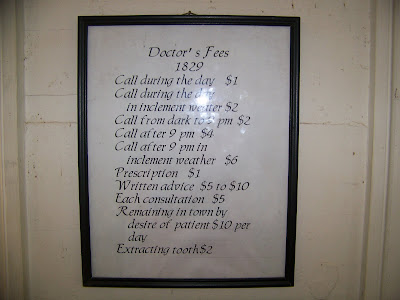 Doctor's Fees
1829
Call during the day $1
Call during the day
in inclement weater $2
Call from dark to 9 pm $2
Call after 9 pm $4
Call after 9 pm in
inclement weather $6
Prescription $1
Written advice $5 to $10
Each consultation $5
Remaining in town by
desire of patient $10 per
day
Extracting tooth $2